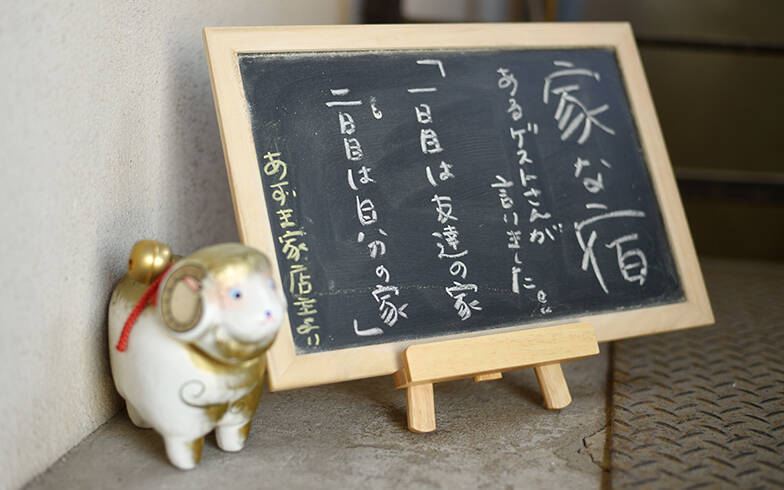 家な宿
あるゲストさんが
言いました。
「一日目は友達の家
二日目は自分の家」
あずき家店主より